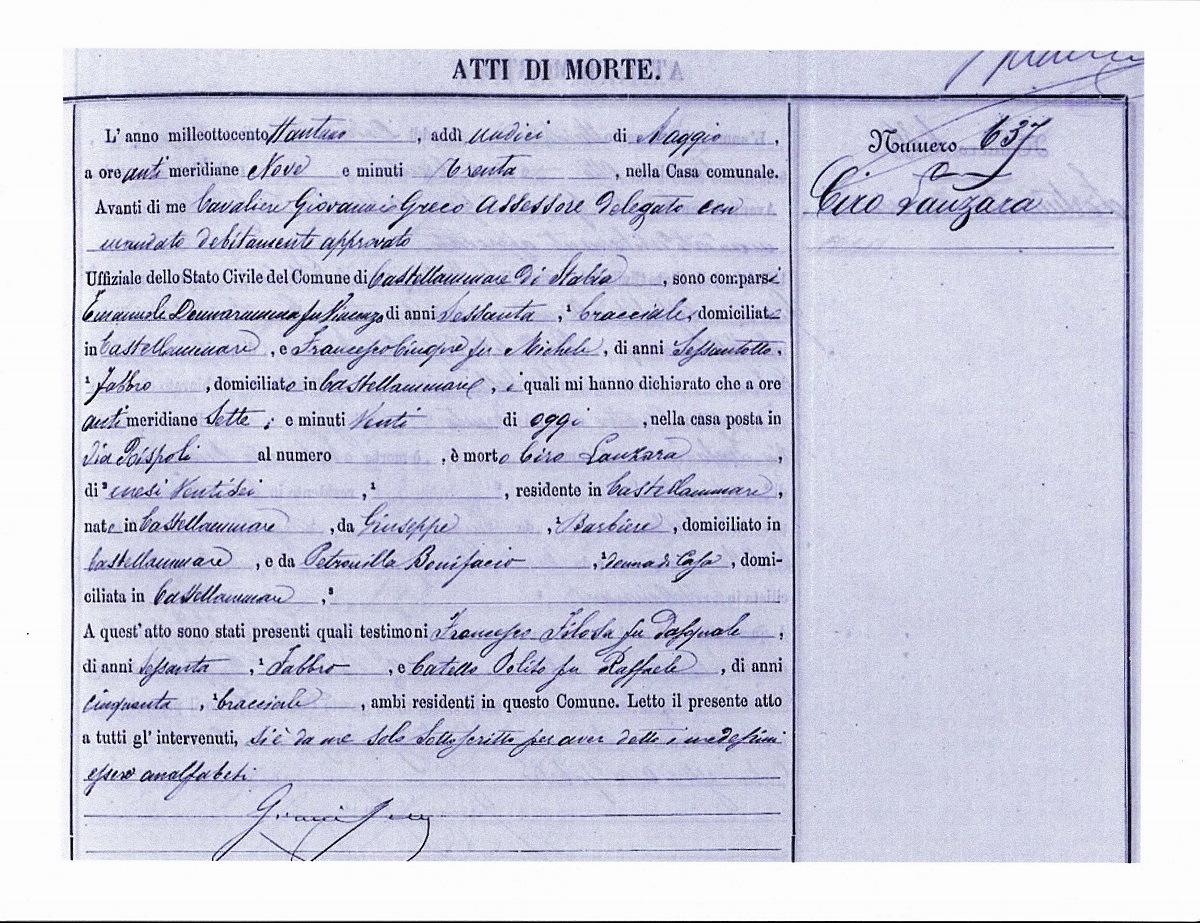 ATTI DI MORTE.
Numero 637
Ciro Lanzara
L'anno milleottocento, addì undici di Maggio,
a ore anti meridiane Nove e minuti trenta, nella Casa comunale.
Avanti di me Cavaliere Giovanni Greco Assessore delegato con
mandato debitamente approvato
Uffiziale dello Stato Civile del Comune di Castellammare di Stabia, sono comparsi
Emanuele Donnarumma fu Vincenzo di anni Sessanta, ¹ bracciale, domiciliato
in Castellammare, e Francesco Cinque fu Michele, di anni Sessantotto,
¹ fabbro, domiciliato in Castellammare, i quali mi hanno dichiarato che a ore
anti meridiane Sette, e minuti Venti di oggi, nella casa posta in
Via Rispoli al numero, è morto Ciro Lanzara,
di ² mesi Ventisei, ¹, residente in Castellammare,
nato in Castellammare, da Giuseppe, ¹ Barbiere, domiciliato in
Castellammare, e da Petronilla Bonifacio, ¹ donna di Casa, domi-
ciliata in Castellammare, ³
A quest'atto sono stati presenti quali testimoni Francesco Filosa fu Pasquale,
di anni Sessanta, ¹ Fabbro, e Catello Polito fu Raffaele, di anni
cinquanta, ¹ bracciale, ambi residenti in questo Comune. Letto il presente atto
a tutti gl'intervenuti, si è da me solo Sottoscritto per aver detto i medesimi
essere analfabeti